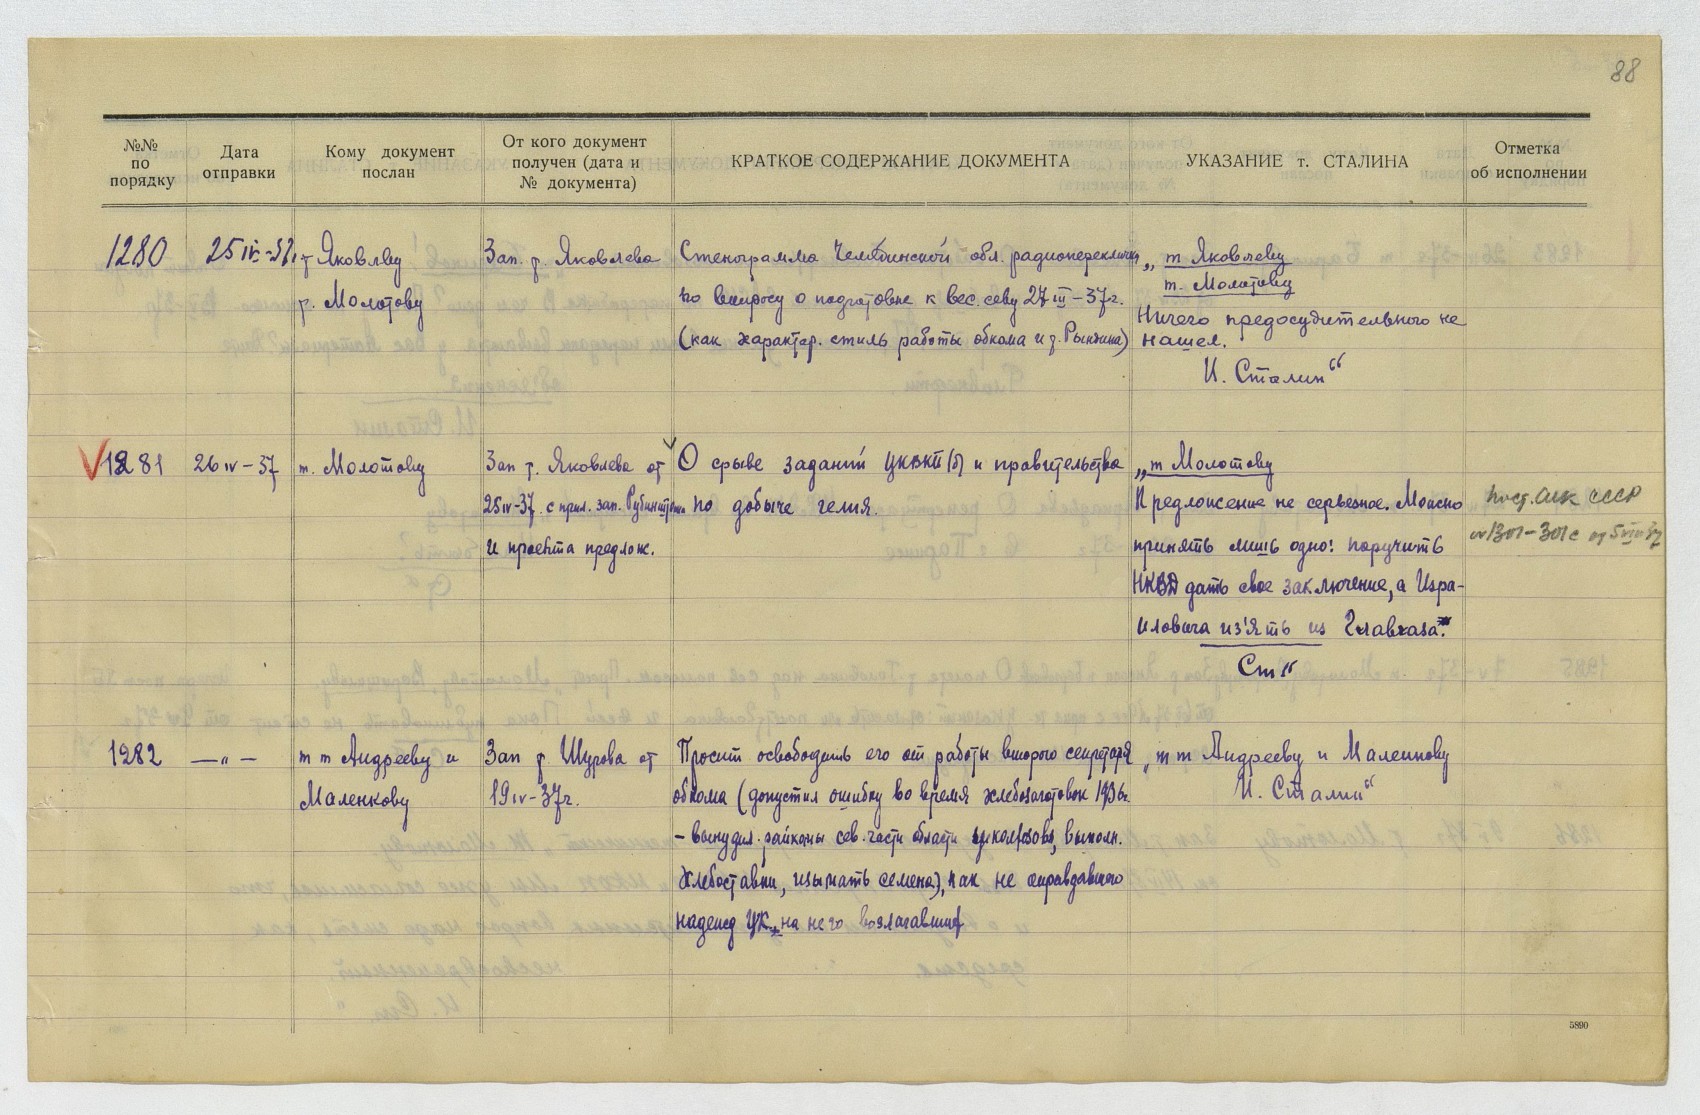 88
№№
по
порядку
Дата
отправки
Кому документ
послан
От кого документ
получен (дата и
№ документа)
КРАТКОЕ СОДЕРЖАНИЕ ДОКУМЕНТА
УКАЗАНИЕ т. СТАЛИНА
Отметка
об исполнении
1280
25 IV-37г.
т. Яковлеву
т. Молотову
Зап. т. Яковлева
Стенограмма Челябинской обл. радиопереклички
по вопросу о подготовке к вес. севу 27 III-37г.
(как характер. стиль работы обкома и т. Рындина)
„т Яковлеву
т. Молотову
Ничего предосудительного не
нашел.
И. Сталин“
1281
26 IV-37
т. Молотову
Зап т. Яковлева от
25 IV-37 с прил. зап.
и проекта предлож.
О срыве заданий ЦКВКП(б) и правительства
по добыче гелия.
„т Молотову
Предложение не серьезное. Можно
принять лишь одно: поручить
НКВД дать свое заключение, а Изра-
иловича из'ять из Главгаза.
Ст“
Пост. СНК СССР
от 5 VIII 37
1282
—„—
т т Андрееву и
Маленкову
Зап т Шурова от
19 IV-37г.
Просит освободить его от работы второго секретаря
обкома (допустил ошибку во время хлебозаготовок 1936г.
– вынудил райкомы сев. части области у колхозов, выполн.
хлебоставки, изымать семена), как не оправдавшего
надежд ЦК, на него возлагавших
„т т Андрееву и Маленкову
И. Сталин“
5890